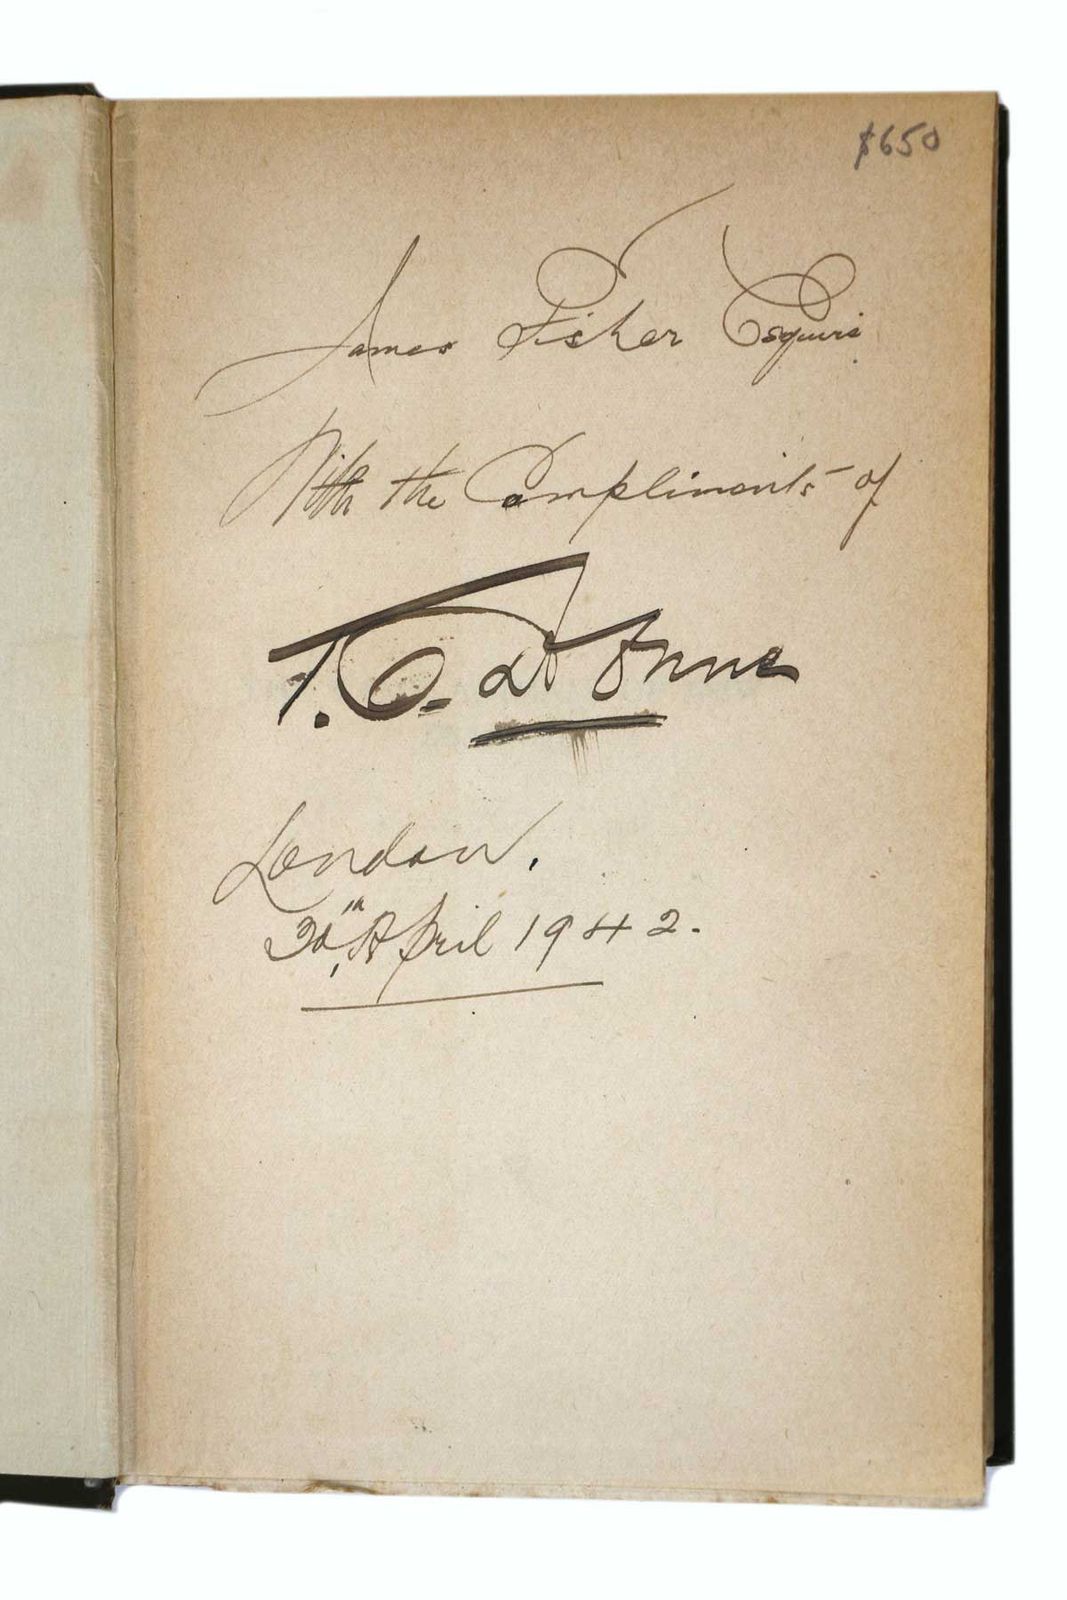 $650
James Fisher Esquire
With the Compliments of
T. O.
London.
April 1942.